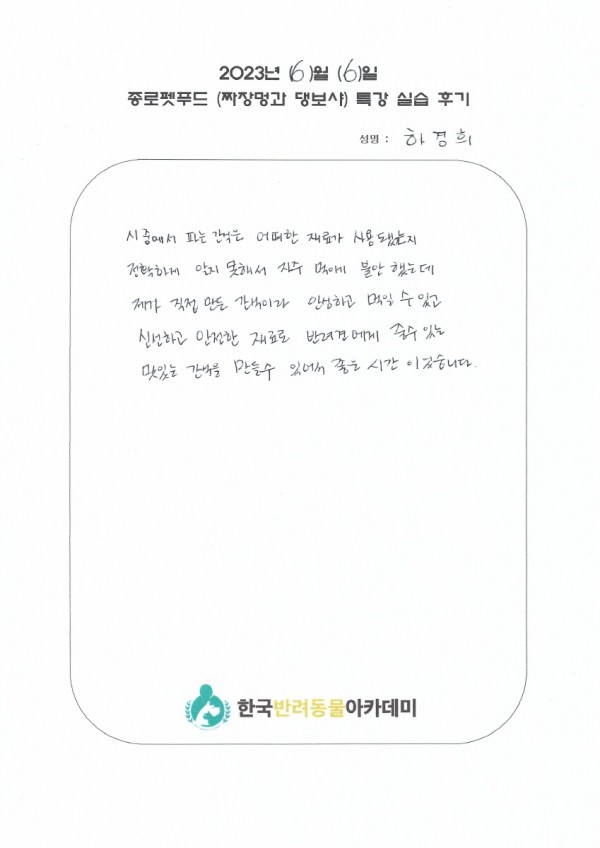 2023년 (6)월 (6)일
종로펫푸드 (짜장멍과 댕보샤) 특강 실습 후기
성명 : 하경희
시중에서 파는 간식은 어떠한 재료가 사용됐는지
정확하게 알지 못해서 자주 먹이기 불안 했는데
제가 직접 만든 간식이라 안심하고 먹일 수 있고
신선하고 안전한 재료로 반려견에게 줄수 있는
맛있는 간식을 만들수 있어서 좋은 시간 이였습니다.
한국반려동물아카데미